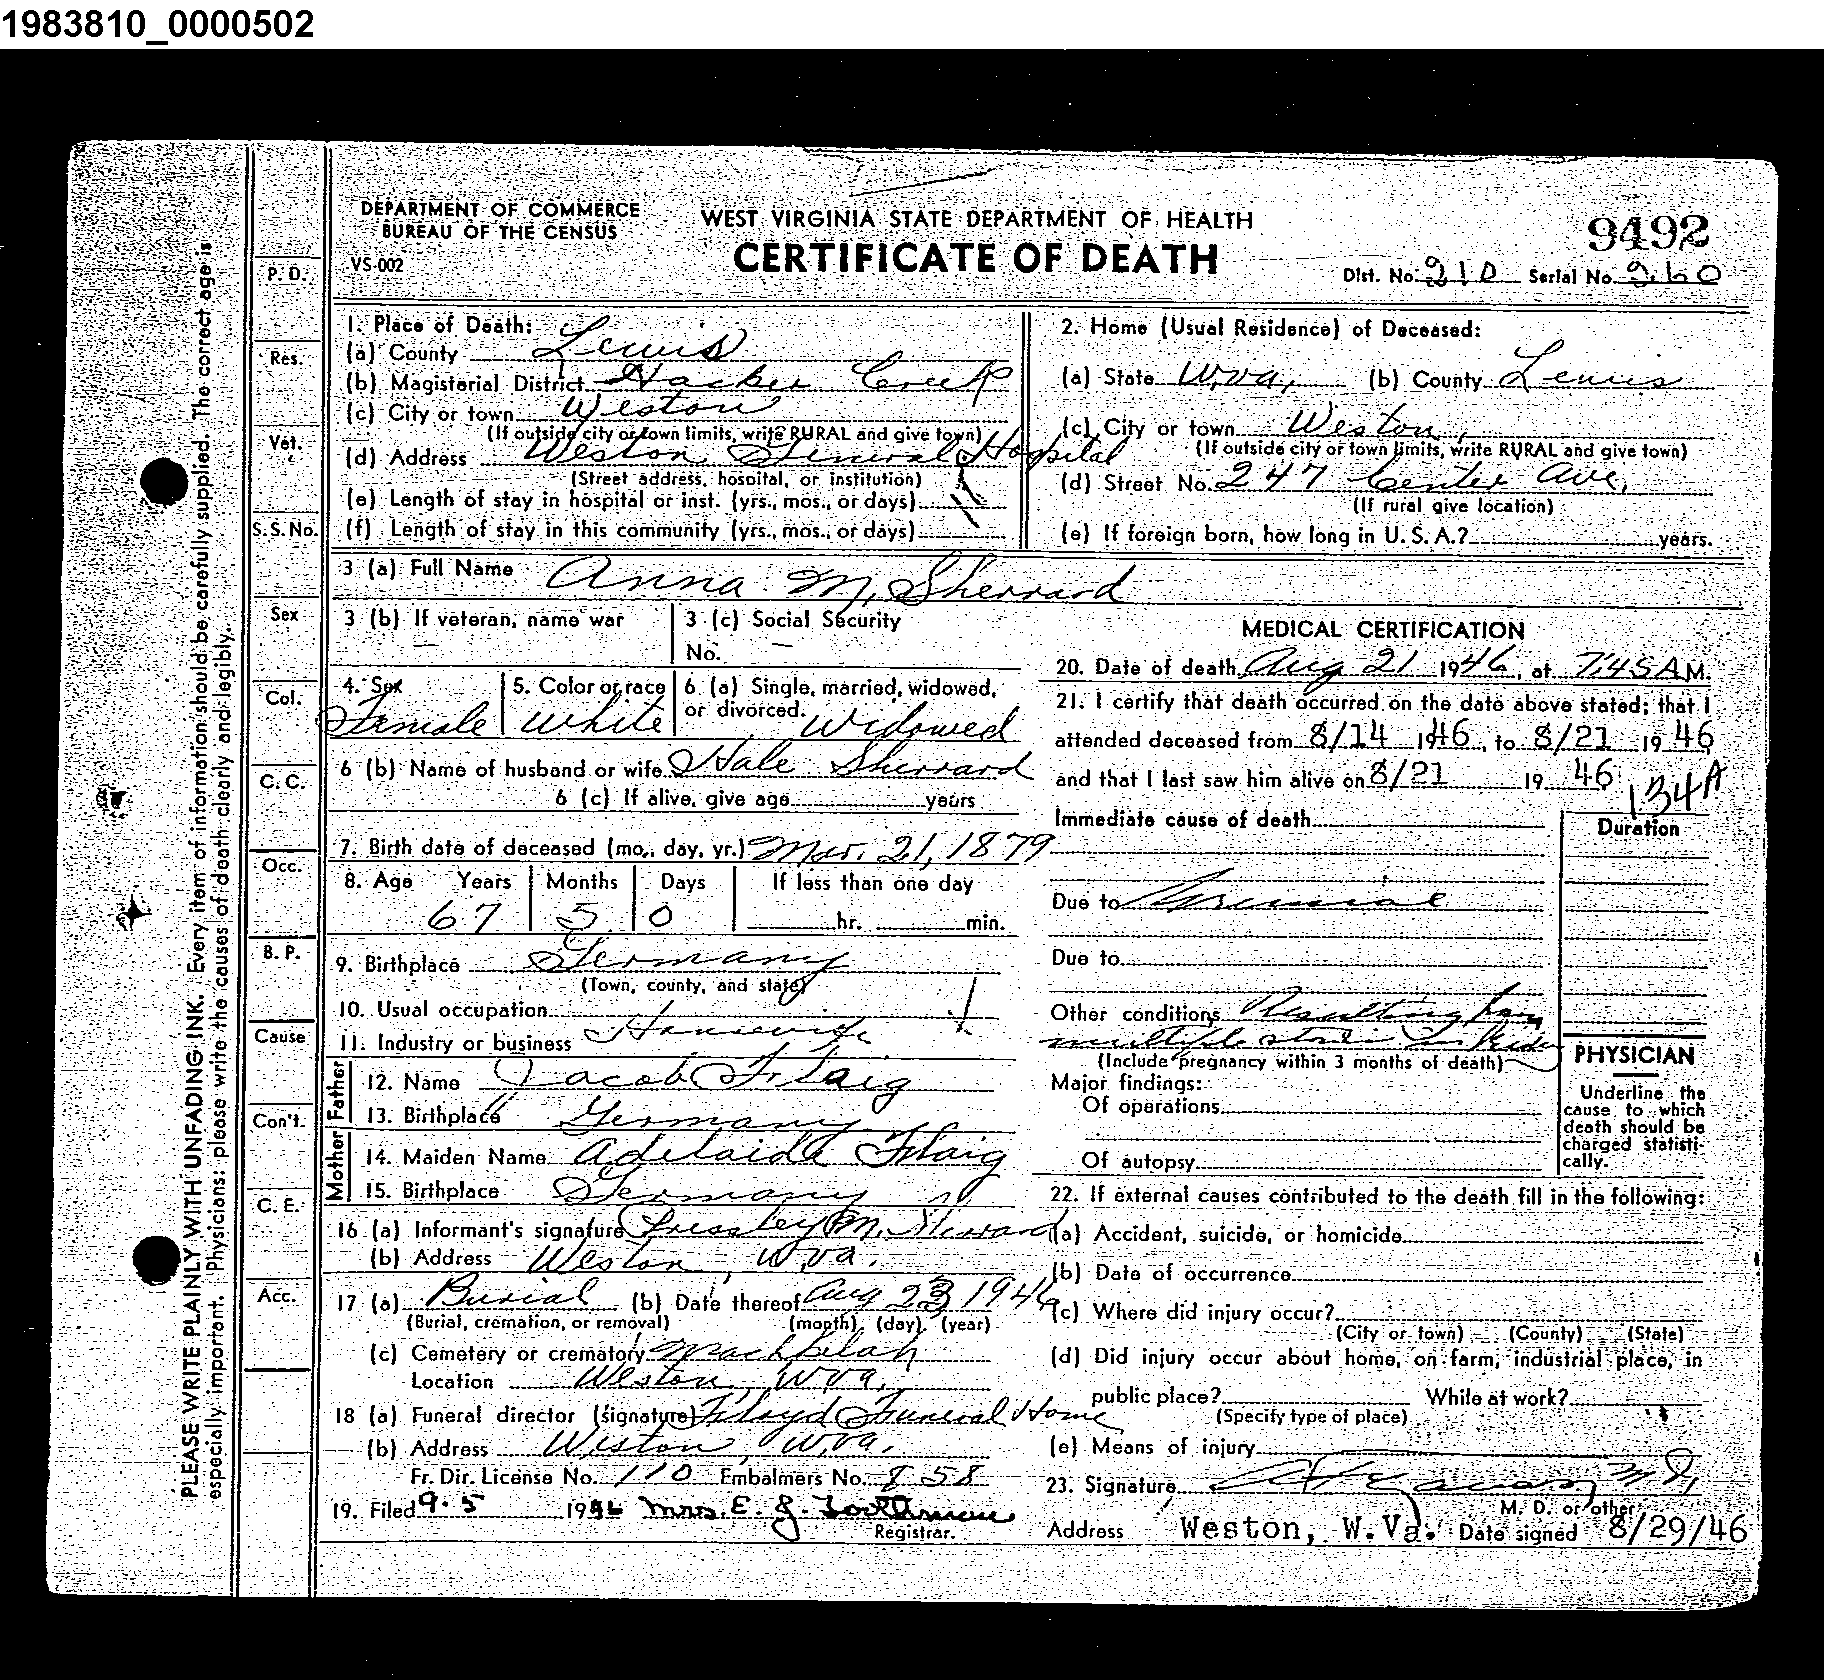 1983810_0000502
DEPARTMENT OF COMMERCE
BUREAU OF THE CENSUS
VS-002
WEST VIRGINIA STATE DEPARTMENT OF HEALTH
CERTIFICATE OF DEATH
9492
Dist. No. 210 Serial No. 260
PLEASE WRITE PLAINLY WITH UNFADING INK. Every item of information should be carefully supplied. The correct age is
especially important. Physicians: please write the causes of death clearly and legibly.
P. D.
Res.
Vet.
S.S. No.
Sex
Col.
C. C.
Occ.
B. P.
Cause
Con't.
C. E.
Acc.
1. Place of Death:
(a) County Lewis
(b) Magisterial District Hacker Creek
(c) City or town Weston
(If outside city or town limits, write RURAL and give town)
(d) Address Weston General Hospital
(Street address, hospital, or institution)
(e) Length of stay in hospital or inst. (yrs., mos., or days)
(f) Length of stay in this community (yrs., mos., or days)
2. Home (Usual Residence) of Deceased:
(a) State W.Va, (b) County Lewis
(c) City or town Weston,
(If outside city or town limits, write RURAL and give town)
(d) Street No. 247 Center Ave,
(If rural give location)
(e) If foreign born, how long in U. S. A.? years.
3 (a) Full Name Anna M. Sherrard
3 (b) If veteran, name war —
3 (c) Social Security
No. —
4. Sex Female
5. Color or race White
6 (a) Single, married, widowed,
or divorced. Widowed
6 (b) Name of husband or wife Hale Sherrard
6 (c) If alive, give age years
7. Birth date of deceased (mo., day, yr.) Mar. 21, 1879
8. Age Years Months Days If less than one day
67 5 0 hr. min.
9. Birthplace Germany
(Town, county, and state)
10. Usual occupation
11. Industry or business Housewife
Father
12. Name Jacob Flaig
13. Birthplace Germany
Mother
14. Maiden Name Adelaide Flaig
15. Birthplace Germany
16 (a) Informant's signature Pressley M. Sherrard
(b) Address Weston, W.Va.
17 (a) Burial (b) Date thereof Aug 23 1946
(Burial, cremation, or removal) (month) (day) (year)
(c) Cemetery or crematory Machpelah
Location Weston, W.Va.
18 (a) Funeral director (signature) Floyd Funeral Home
(b) Address Weston, W.Va.
Fr. Dir. License No. 110 Embalmers No. 858
19. Filed 9-5 1946 Mrs. E. J.
Registrar.
MEDICAL CERTIFICATION
20. Date of death Aug 21 1946, at 7:45 A M.
21. I certify that death occurred on the date above stated; that I
attended deceased from 8/14 1946, to 8/21 1946
and that I last saw him alive on 8/21 19 46
134A
Immediate cause of death
Duration
Due to
Due to
Other conditions Resulting from
multiple stones in
(Include pregnancy within 3 months of death)
Major findings:
Of operations
Of autopsy
PHYSICIAN
Underline the
cause to which
death should be
charged statisti-
cally.
22. If external causes contributed to the death fill in the following:
(a) Accident, suicide, or homicide
(b) Date of occurrence
(c) Where did injury occur?
(City or town) (County) (State)
(d) Did injury occur about home, on farm, industrial place, in
public place? While at work?
(Specify type of place)
(e) Means of injury
23. Signature M.D.
M. D. or other
Address Weston, W.Va. Date signed 8/29/46